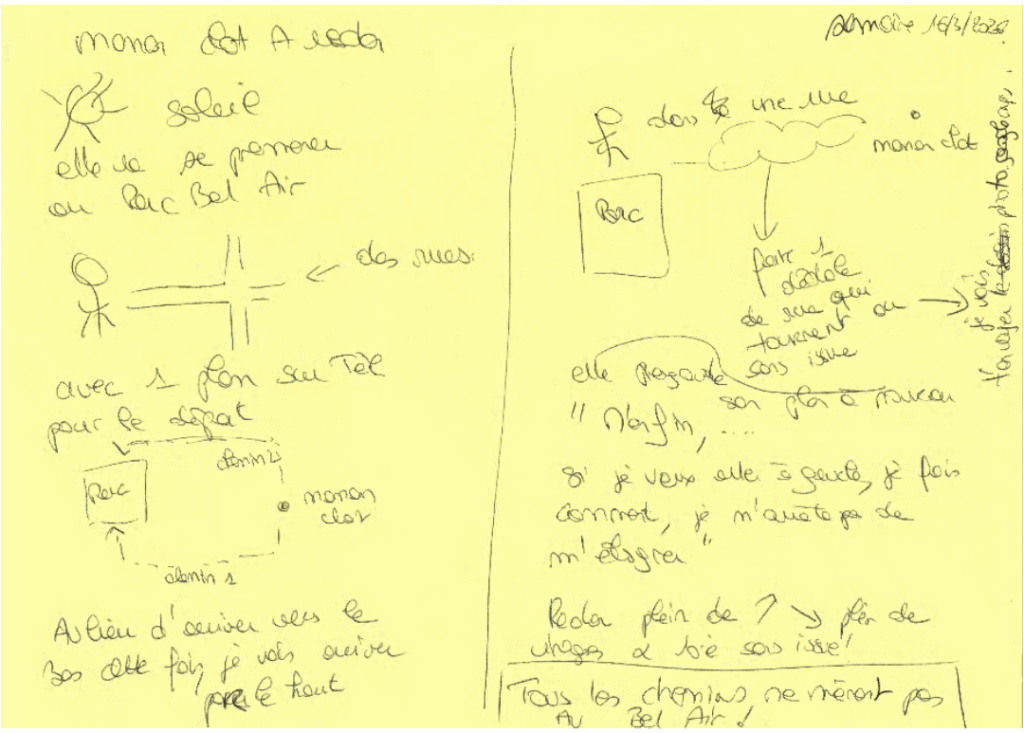 manon clot A
soleil
elle va se promener
au Parc Bel Air
des rues.
avec 1 plan sur Tél
pour le départ
chemin 2
Parc
manon
clot
chemin 1
Au lieu d'arriver vers le
bas cette fois, je vais arriver
par le haut
semaine 16/3/2020
dans une rue
manon clot
Parc
part 1
dédale
de rue qui
tournent ou
sans issue
je vais
t'envoyer le photo
elle regarde
son plan à nouveau
" M'enfin, ....
Si je veux aller à gauche, je fais
comment, je n'arrête pas de
m'éloigner "
plein de ↗ ↘ plein de
virages & sans issue!
Tous les chemins, ne mènent pas
Au Bel Air !